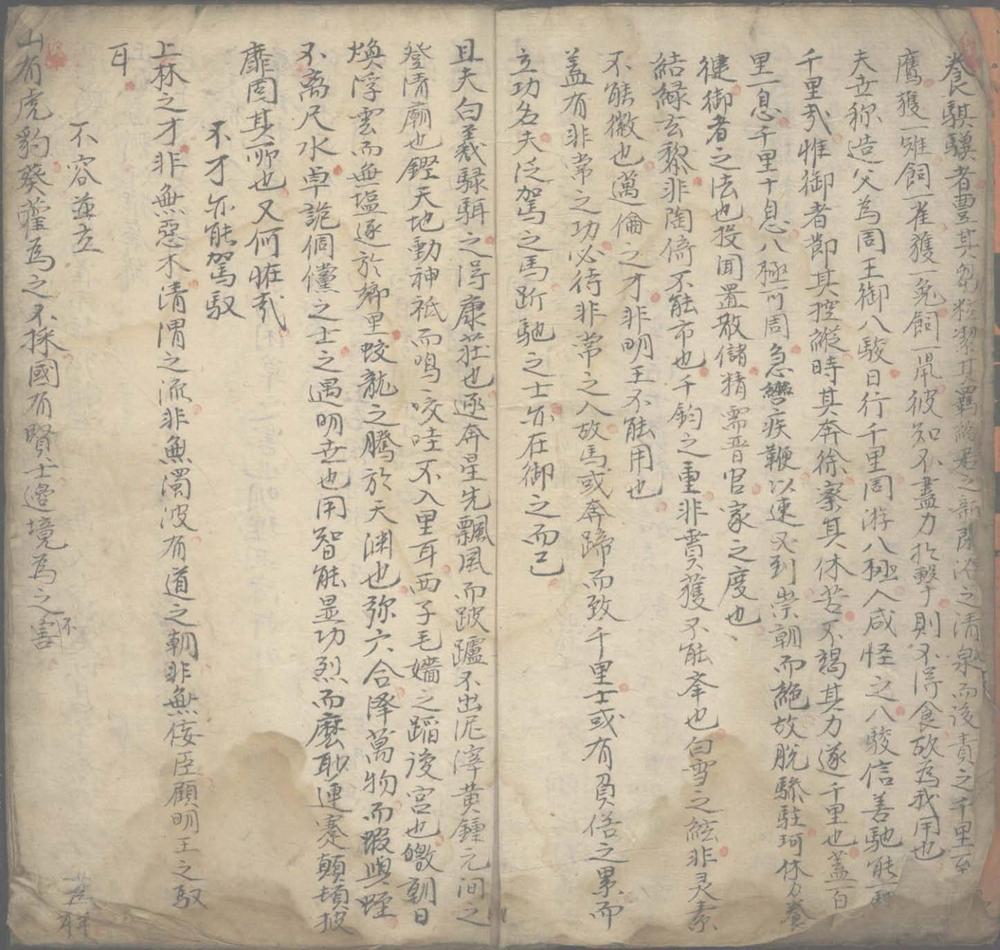 養騏驥者豊其芻粒潔其羈絡居之新閑浴之清泉而後責之千里
鷹獲一雉飼一雀獲一兎飼一鼠彼知不盡力於擊則不得食故為我用也
夫世称造父為周王御八駿日行千里周游八極人咸怪之八駿信善馳能
千里㢤惟御者節其控縱時其奔徐察其休苦不竭其力遂千里也盖一百
里一息千里十息八極可周急轡疾鞭以速又到崇朝而䠂故脱驂駐珂休力養
健御者之法也投閒置散儲精需晋官家之度也
結緑玄黎非陶倚不能市也千鈞之重非賁獲不能牽也白雪之絃非灵素
不能徽也萬倫之才非明王不能用也
盖有非常之功必待非常之人故馬或奔蹄而致千里士或有負俗之累而
立功名夫泛駕之馬跅馳之士亦在御之而已
且夫白羲騄駬之得康莊也逐奔星先飄風而跛驢不出泥滓黄鍾元间之
登清廟也鏗天地動神祇而鳴咬哇不入里耳西子毛嬙之蹈後宫也皦朝日
煥浮雲而無塩逐於郷里蛟龍之騰於天渊也弥六合澤萬物而蝦與蛭
不離尺水卓詭倜儻之士之遇明世也用智能显功烈而麽耴連蹇顛頓披
靡固其所也又何眶㢤
不才亦能駕馭
上林之才非無惡木清渭之流非無濁波有道之朝非無佞臣顧明王之馭
耳
不容並立
山有虎豹葵藿為之不採國有賢士邊境為之不害